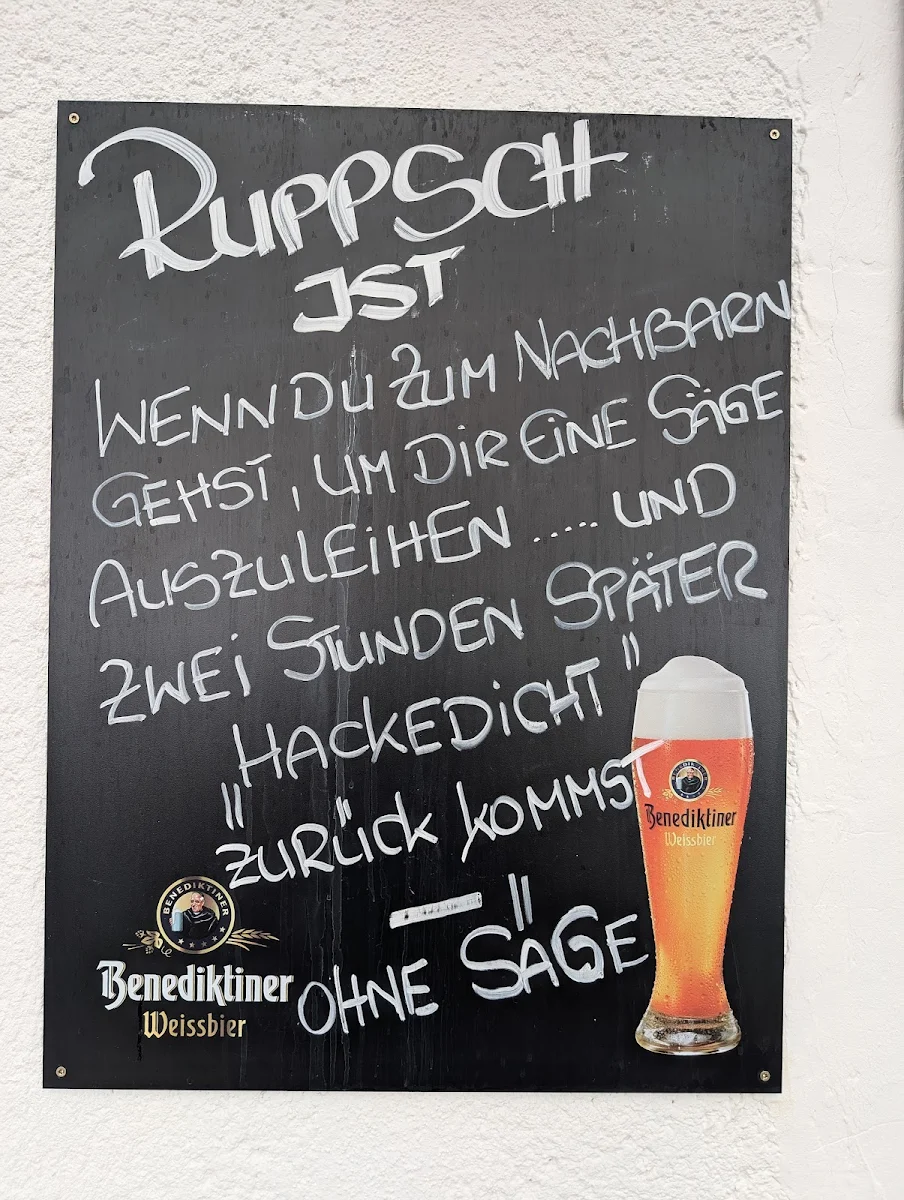 RUPPSCH
IST
WENN DU ZUM NACHBARN
GEHST, UM DIR EINE SÄGE
AUSZULEIHEN ..... UND
ZWEI STUNDEN SPÄTER
„HACKEDICHT"
ZURÜCK KOMMST
—
OHNE SÄGE
BENEDIKTINER
Benediktiner
Weissbier
Benediktiner
Weissbier